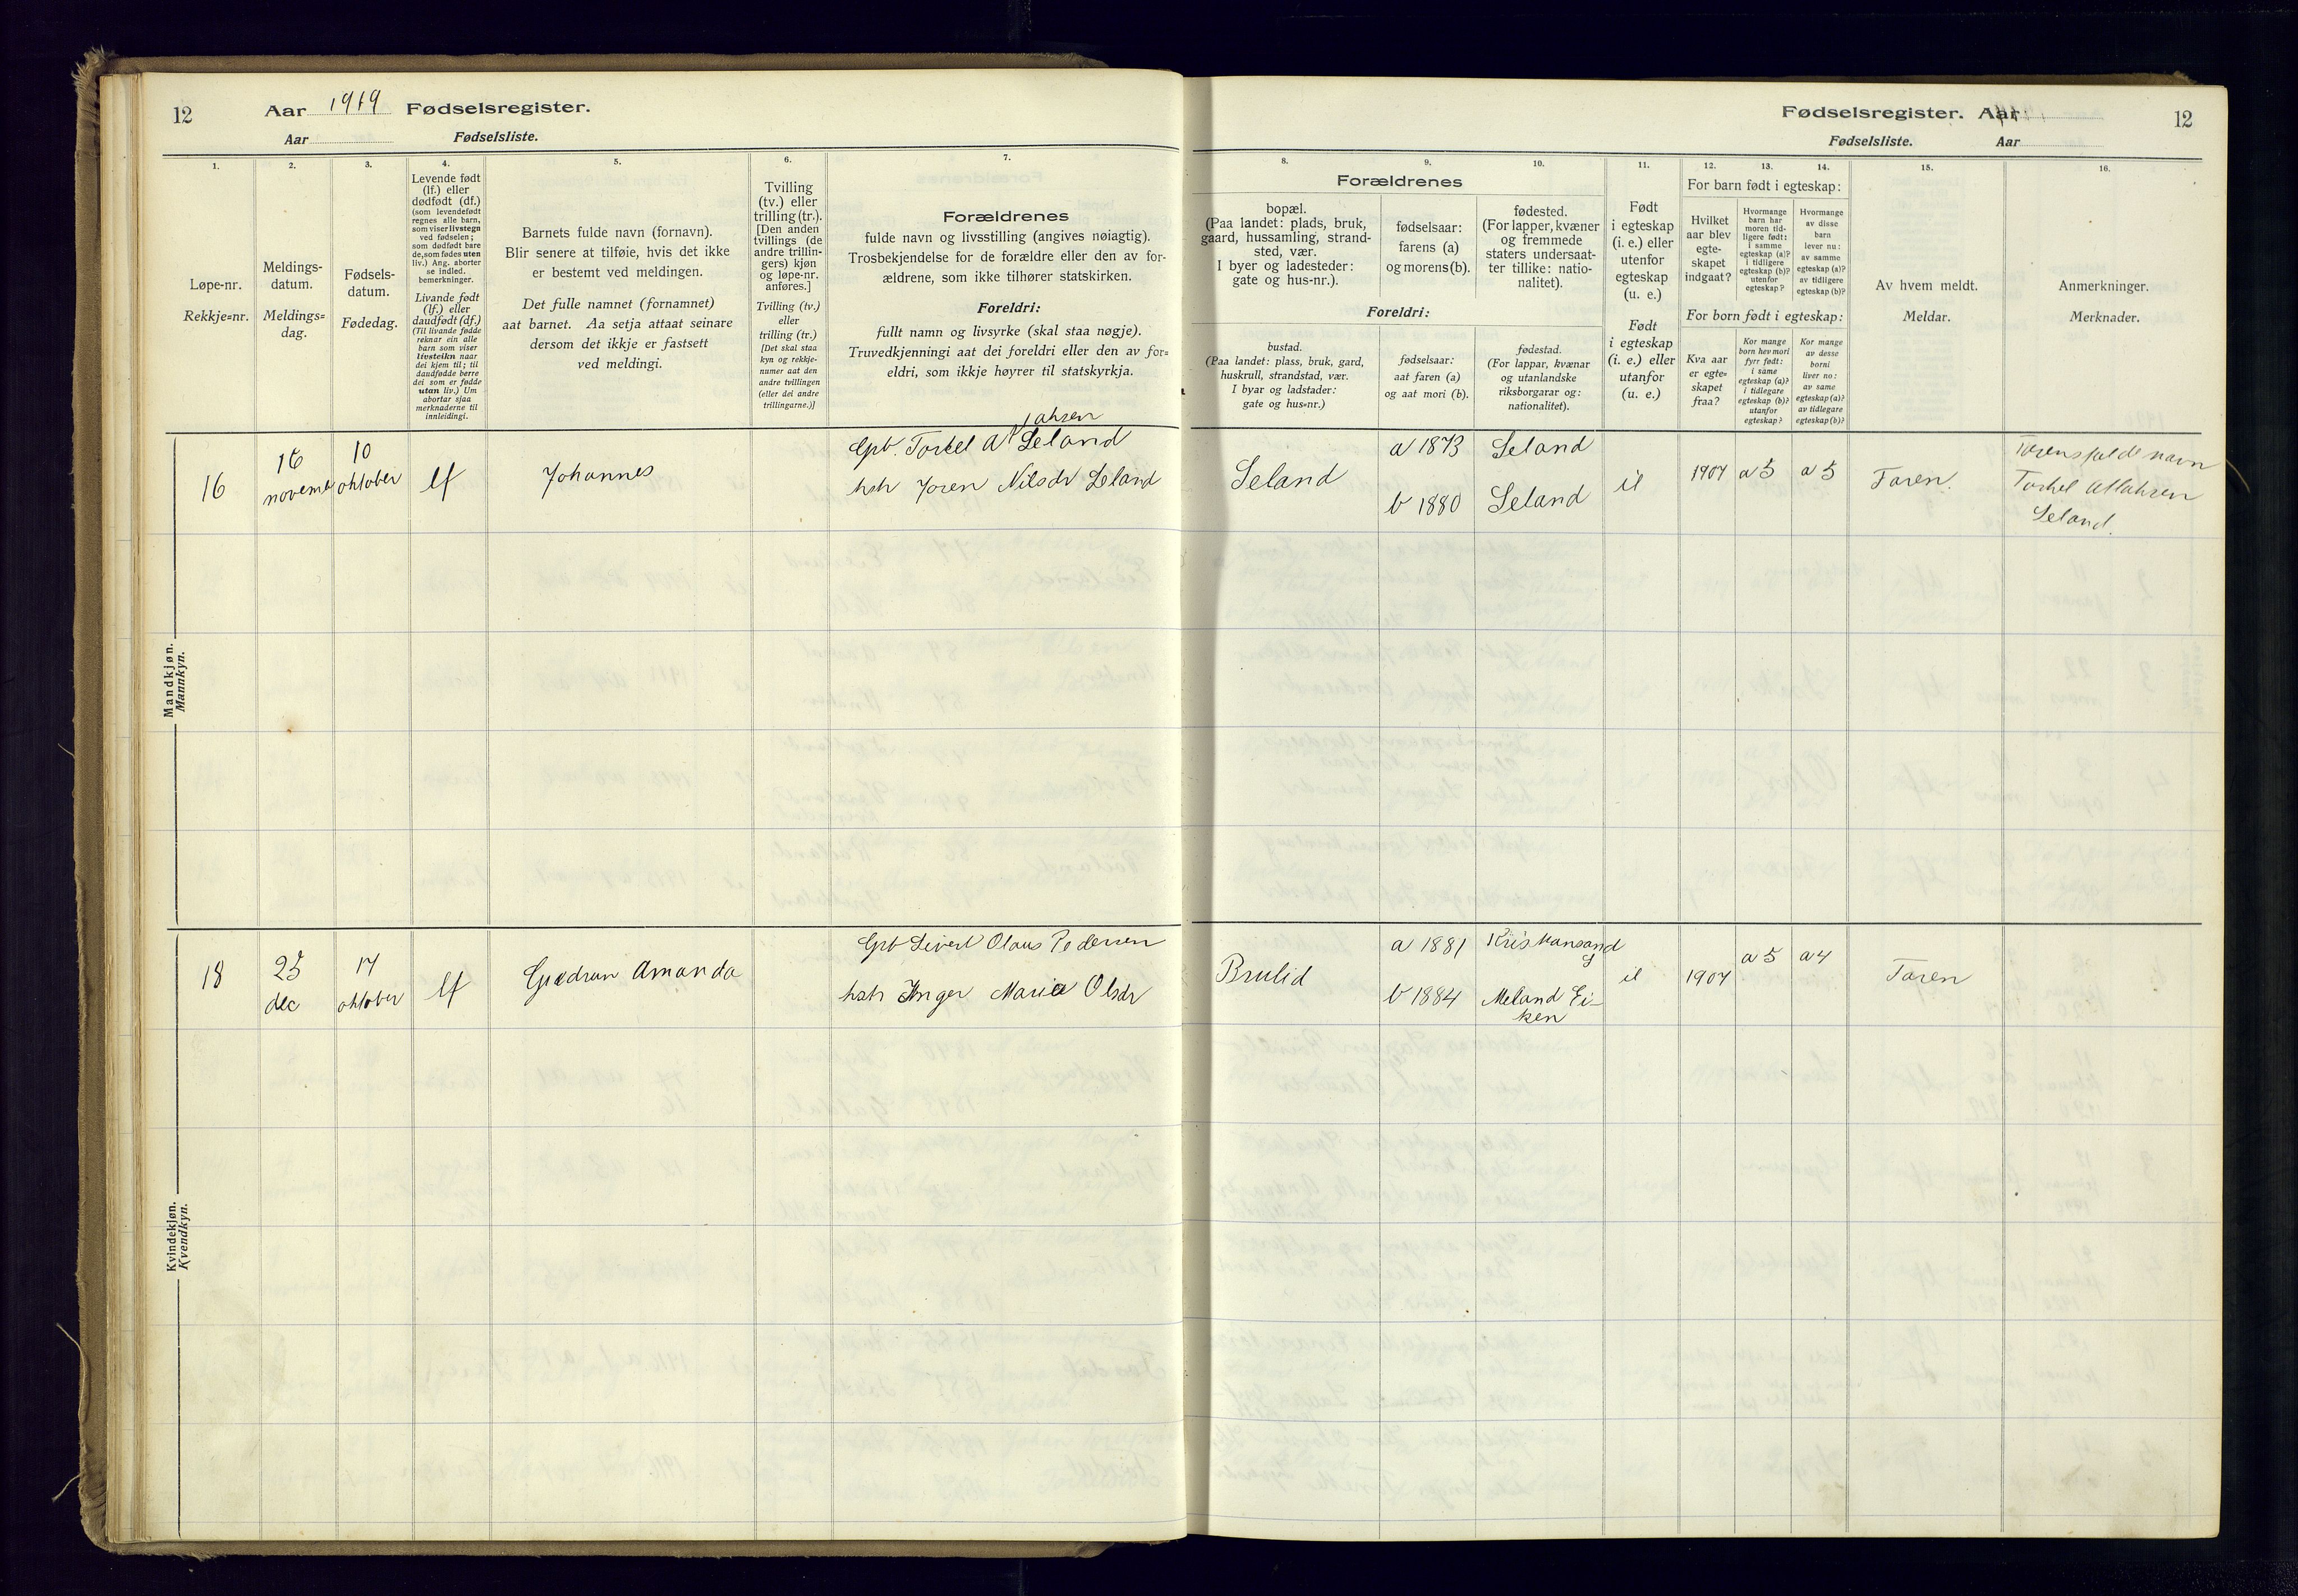 12
Aar 1919 Fødselsregister.
Aar Fødselsliste.
1.
2.
3.
4.
5.
6.
7.
Løpe-nr.
Rekkje=nr.
Meldings-
datum.
Meldings=
dag.
Fødsels-
datum.
Fødedag.
Levende født
(lf.) eller
dødfødt (df.)
(som levendefødt
regnes alle barn,
som viser livstegn
ved fødselen;
som dødfødt bare
de, som fødes uten
liv.) Ang. aborter
se indled.
bemerkninger.
Livande født
(lf.) eller
daudfødt (df.)
(Til livande fødde
reknar ein alle
barn som viser
livsteikn naar
dei kjem til; til
daudfødde berre
dei som er fødde
utan liv.) Um
abortar sjaa
merknaderne til
innleidingi.
Barnets fulde navn (fornavn).
Blir senere at tilføie, hvis det ikke
er bestemt ved meldingen.
Det fulle namnet (fornamnet)
aat barnet. Aa setja attaat seinare
dersom det ikkje er fastsett
ved meldingi.
Tvilling
(tv.) eller
trilling (tr.).
[Den anden
tvillings (de
andre trillin-
gers) kjøn
og løpe-nr.
anføres.]
Tvilling (tv.)
eller
trilling (tr.)
[Det skal staa
kyn og rekkje-
numer aat den
andre tvillingen
(eller dei andre
trillingarne.)]
Forældrenes
fulde navn og livsstilling (angives nøiagtig).
Trosbekjendelse for de forældre eller den av for-
ældrene, som ikke tilhører statskirken.
Foreldri:
fullt namn og livsyrke (skal staa nøgje).
Truvedkjenningi aat dei foreldri eller den av for=
eldri, som ikkje høyrer til statskyrkja.
Mandkjøn.
Mannkyn.
16
16
novembr
10
oktober
lf
Johannes
Gpb. Torkel Atlahsen Seland
hstr Joren Nilsdr Seland
Kvindekjøn.
Kvendkyn.
18
23
dec
17
oktober
lf
Gudrun Amanda
Gpb Sivert Olaus Pedersen
hstr Inger Maria Olsdr
Fødselsregister. Aar
12
Fødselsliste. Aar
8.
9.
10.
11.
12.
13.
14.
15.
16.
Forældrenes
bopæl.
(Paa landet: plads, bruk,
gaard, hussamling, strand-
sted, vær.
I byer og ladesteder:
gate og hus-nr.).
fødselsaar:
farens (a)
og morens (b).
fødested.
(For lapper, kvæner
og fremmede
staters undersaat-
ter tillike: natio-
nalitet).
Foreldri:
bustad.
(Paa landet: plass, bruk, gard,
huskrull, strandstad, vær.
I byar og ladstader:
gate og hus=nr.)
fødselsaar:
aat faren (a)
og aat mori (b).
fødestad.
(For lappar, kvænar
og utanlandske
riksborgarar og:
nationalitet).
Født
i egteskap
(i. e.) eller
utenfor
egteskap
(u. e.)
Født
i egteskap
(i. e.) eller
utanfor
(u. e.)
For barn født i egteskap:
Hvilket
aar blev
egte-
skapet
indgaat?
Hvormange
barn har
moren tid-
ligere født:
i samme
egteskap (a)?
i tidligere
egteskap (b)?
utenfor
egteskap?
Hvormange
av disse
barn
lever nu:
av samme
egteskap (a)?
av tidligere
egteskap (b)?
For born født i egteskap:
Kva aar
er egte=
skapet
fraa?
Kor mange
born hev mori
fyrr født:
i same
egteskap (a)?
i tidlegare
egteskap (b)?
utanfor
egteskap?
Kor mange
av desse
borni
liver no:
av same
egteskap (a)?
av tidlegare
egteskap (b)?
Av hvem meldt.
Meldar.
Anmerkninger.
Merknader.
Seland
a 1873
b 1880
Seland
Seland
1907
a 5
a 5
Faren.
Farens fulde navn
Torkel Atlahsen
Seland.
Brulid
a 1881
b 1884
Kristiansand
S
Meland Ei-
ken
1907
a 5
a 4
Faren